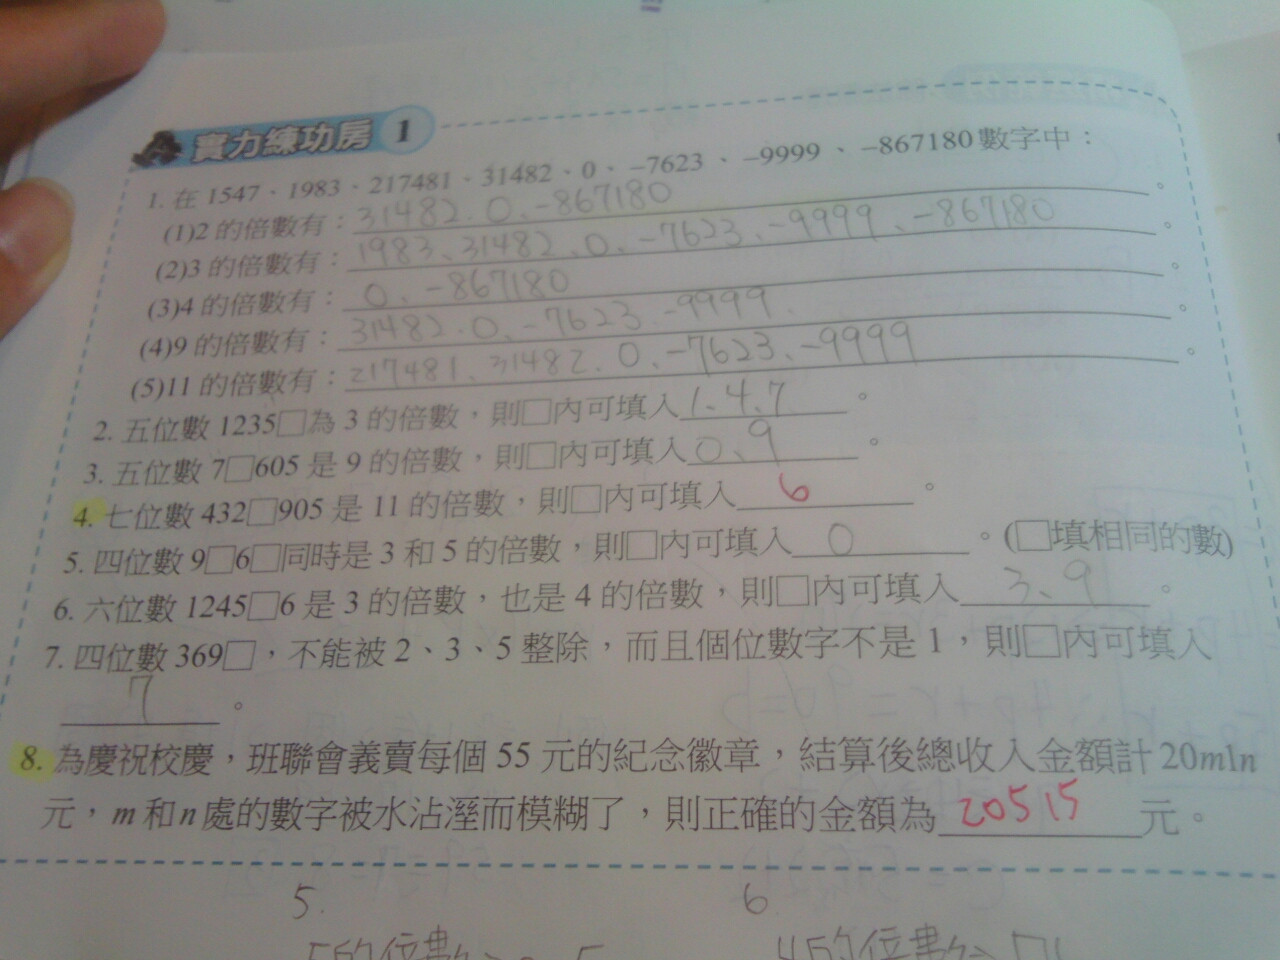 實力練功房 1
1. 在 1547、1983、217481、31482、0、-7623、-9999、-867180 數字中：
(1)2 的倍數有：31482、0、-867180。
(2)3 的倍數有：1983、31482、0、-7623、-9999、-867180。
(3)4 的倍數有：0、-867180。
(4)9 的倍數有：31482、0、-7623、-9999。
(5)11 的倍數有：217481、31482、0、-7623、-9999。
2. 五位數 1235□為 3 的倍數，則□內可填入1、4、7。
3. 五位數 7□605 是 9 的倍數，則□內可填入0、9。
4. 七位數 432□905 是 11 的倍數，則□內可填入 6。
5. 四位數 9□6□同時是 3 和 5 的倍數，則□內可填入 0。(□填相同的數)
6. 六位數 1245□6 是 3 的倍數，也是 4 的倍數，則□內可填入 3、9。
7. 四位數 369□，不能被 2、3、5 整除，而且個位數字不是 1，則□內可填入
7。
8. 為慶祝校慶，班聯會義賣每個 55 元的紀念徽章，結算後總收入金額計 20m1n
元，m 和 n 處的數字被水沾溼而模糊了，則正確的金額為 20515 元。
5.
6